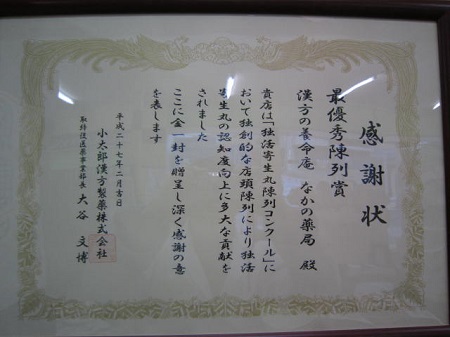 感謝状
最優秀陳列賞
漢方の養命庵 なかの薬局 殿
貴店は「独活寄生丸陳列コンクール」に
おいて独創的な店頭陳列により独活
寄生丸の認知度向上に多大な貢献を
されました
ここに金一封を贈呈し深く感謝の意
を表します
平成二十七年二月吉日
小太郎漢方製薬株式会社
取締役医薬事業部長 大谷 文博